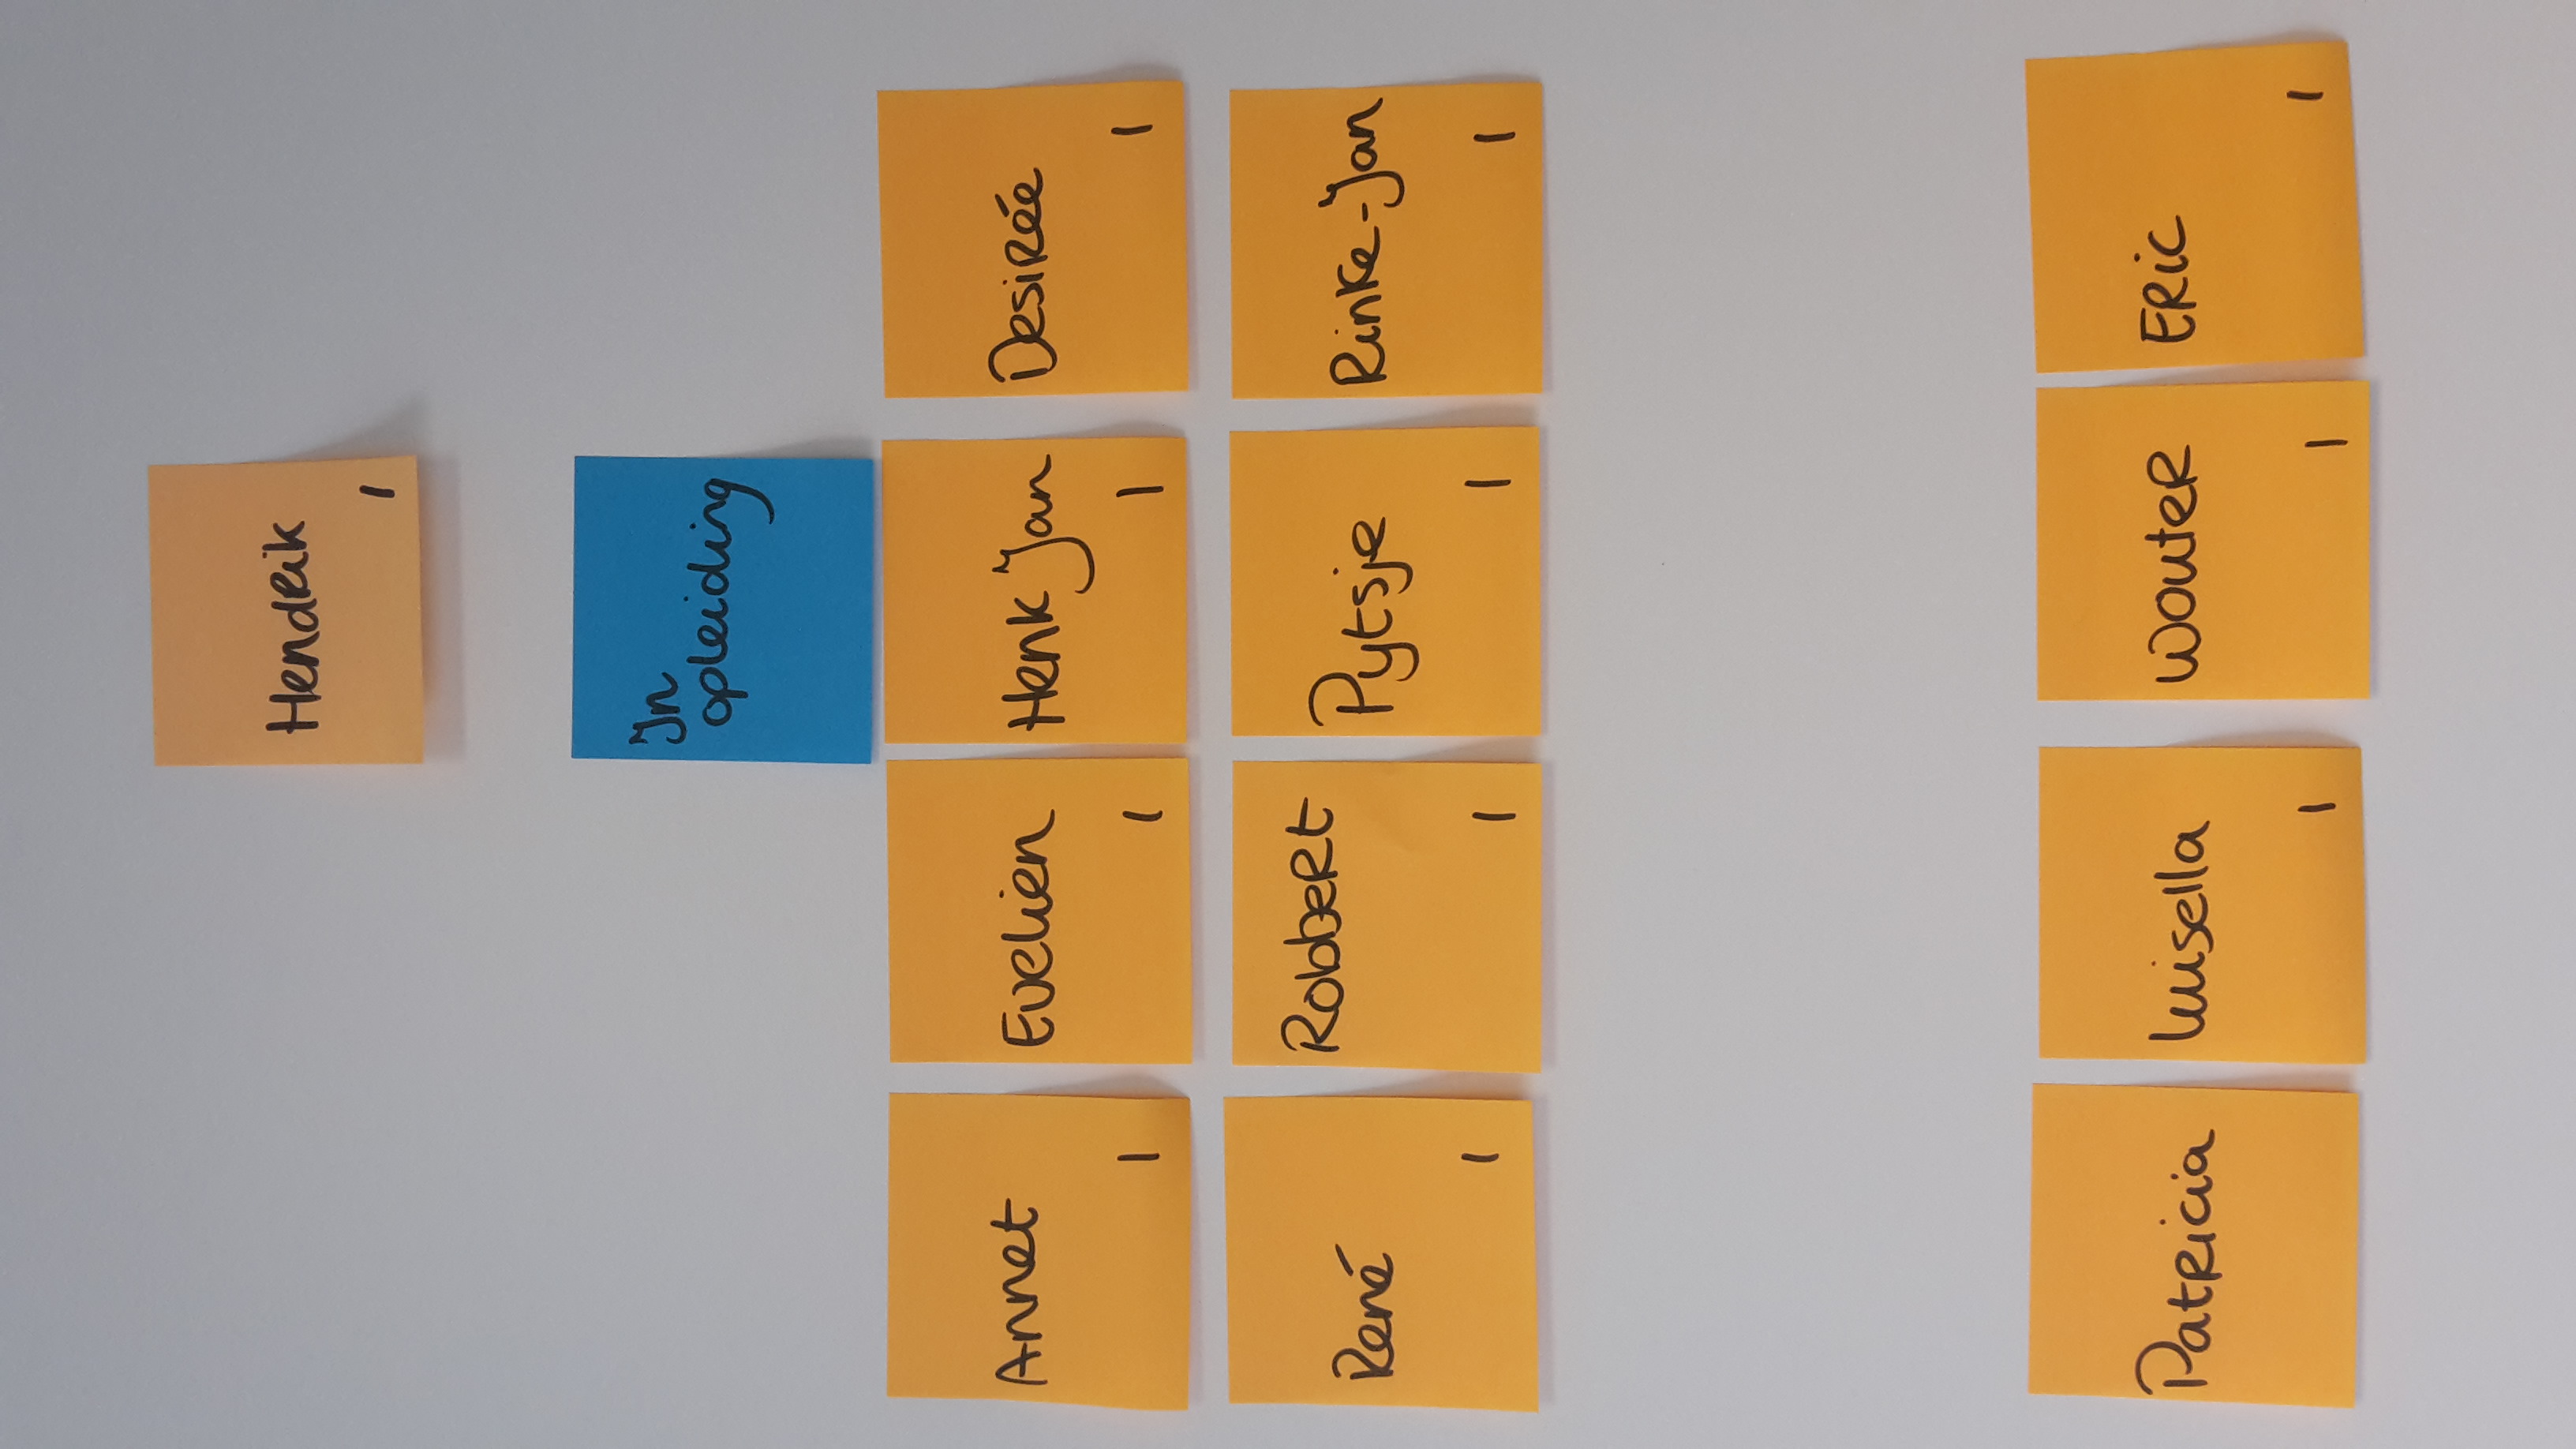 Hendrik
1
In
opleiding
Annet
1
Evelien
1
Henk Jan
1
Desirée
1
René
1
Robbert
1
Pytsje
1
Rinke-Jan
1
Patricia
Luisella
1
Wouter
1
Eric
1